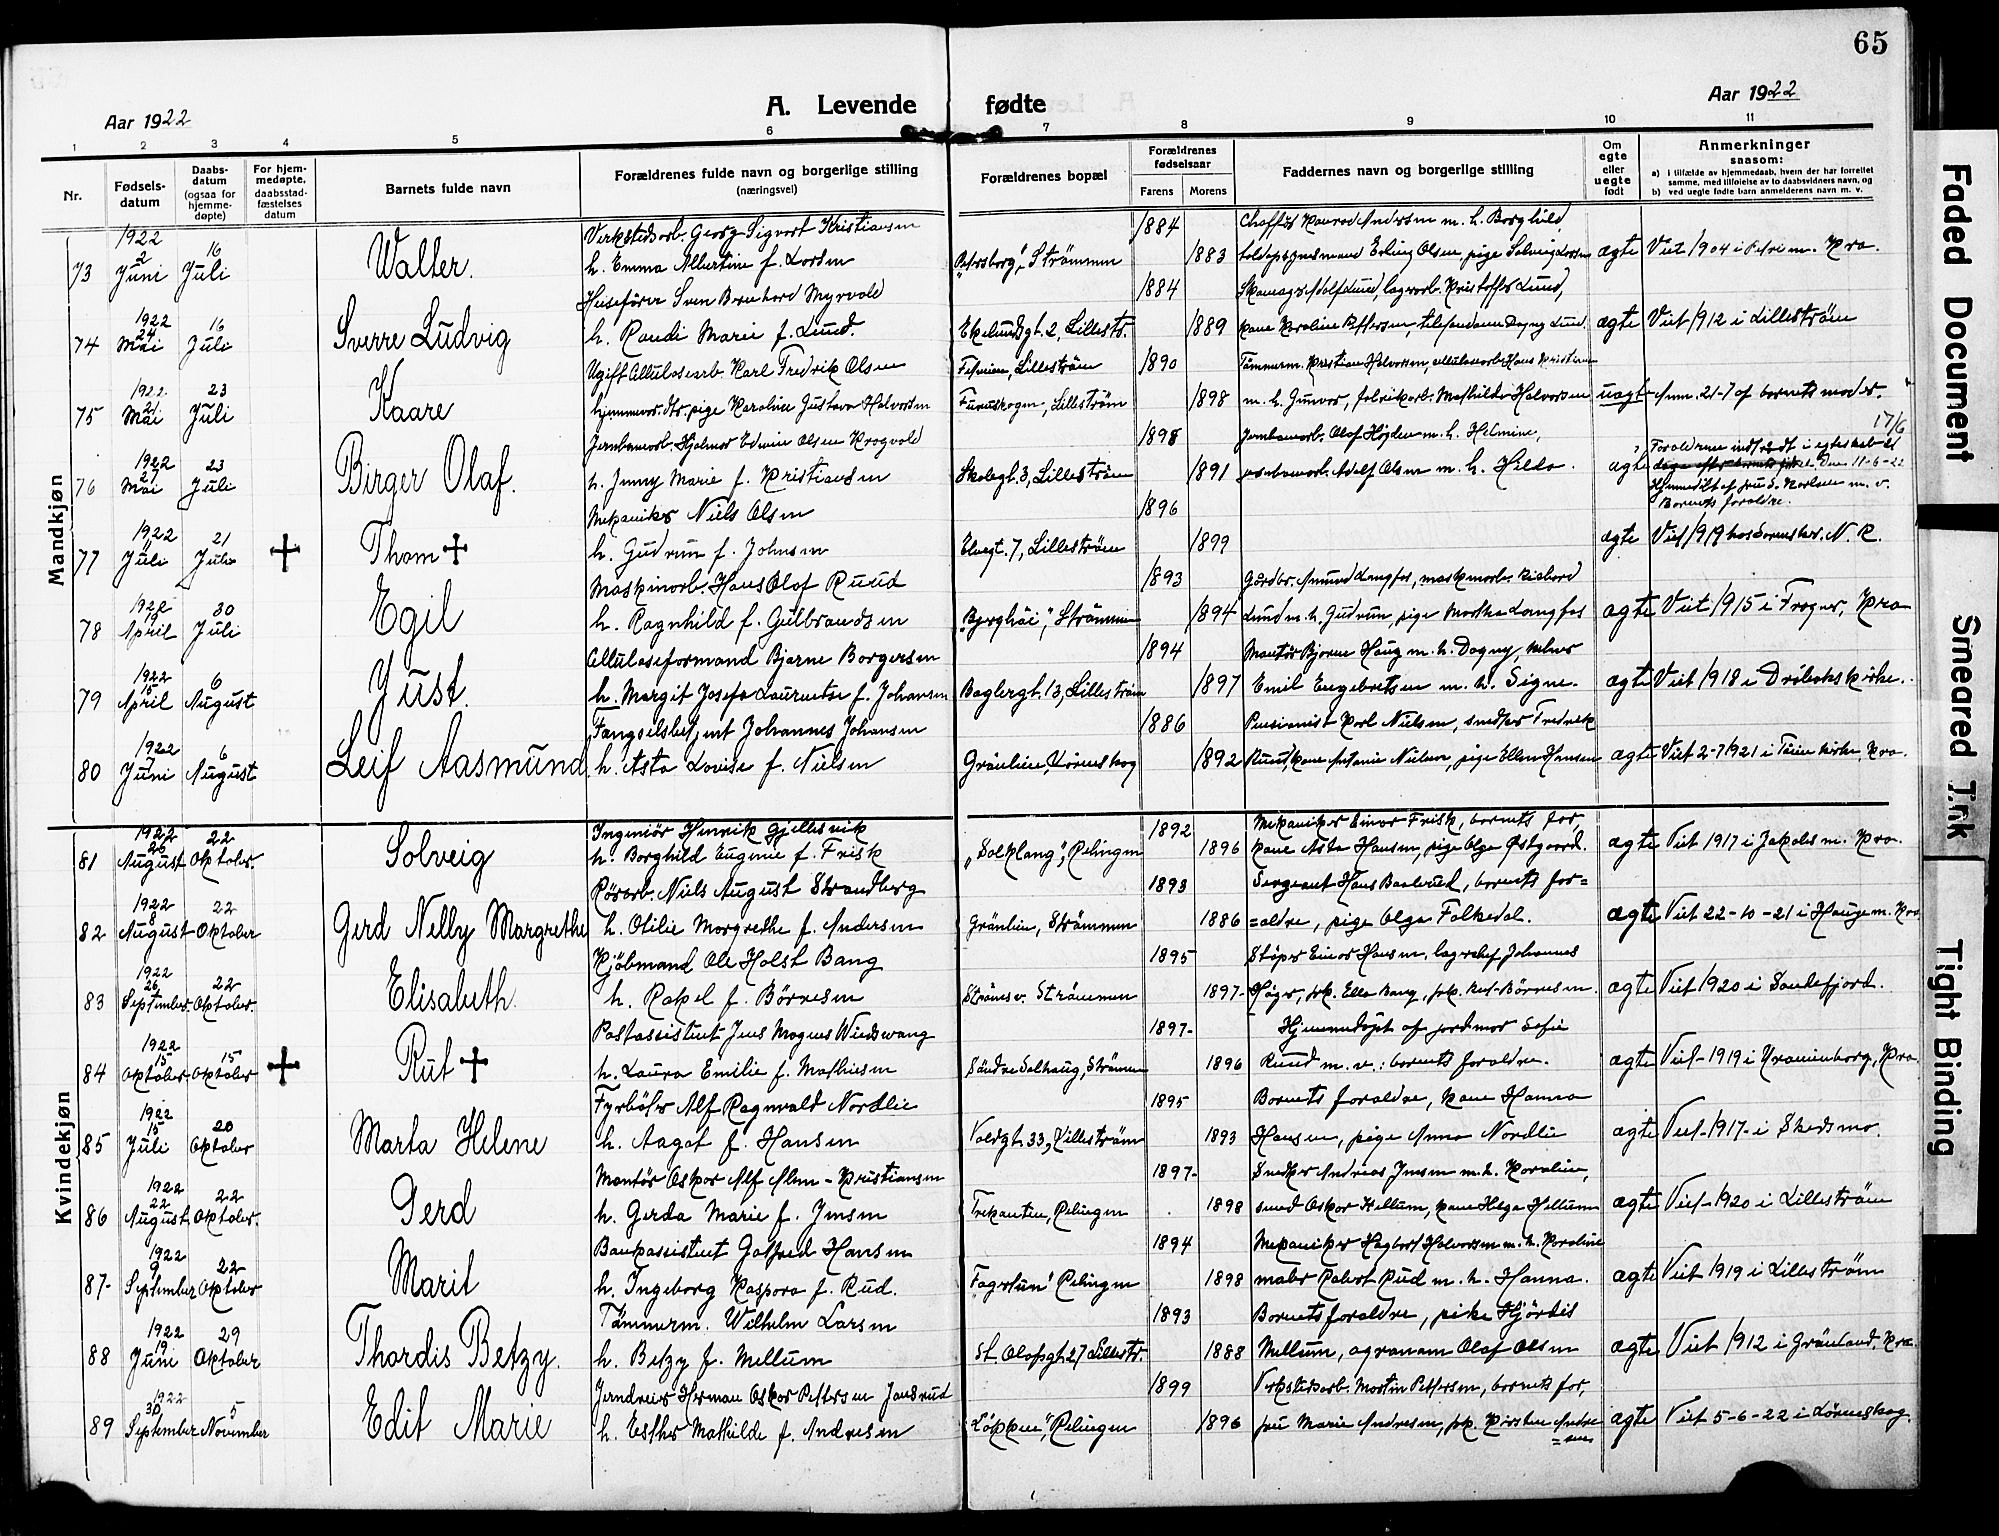 65
Aar 1922
A. Levende fødte
Aar 1922
1 2 3 4 5 6 7 8 9 10 11
Nr.
Fødsels-
datum
Daabs-
datum
(ogsaa for
hjemme-
døpte)
For hjem-
medøpte,
daabsstad-
fæstelses
datum
Barnets fulde navn
Forældrenes fulde navn og borgerlige stilling
(næringsvei)
Forældrenes bopæl
Forældrenes
fødselsaar
Farens Morens
Faddernes navn og borgerlige stilling
Om
egte
eller
uegte
født
Anmerkninger
snasom:
a) i tilfælde av hjemmedaab, hvem der har forrettet
samme, med tilføielse av to daabsvidners navn, og
b) ved uegte fødte barn anmelderens navn m. v.
Mandkjøn
1922 Verkstedsarb. Georg Sigvart Kristiansen 1884
73 2 Juni 16 Juli Walter. h. Emma Albertine f. Larsen "Petersborg", Strømmen 1883 ægte Viet 1904 i Petri m. Kra.
1922 Sven Bernhard Myrvold 1884
74 24 Mai 16 Juli Sverre Ludvig h. Randi Marie f. Lund. Ekelundsgt. 2, Lillestr. 1889 ægte Viet 1912 i Lillestrøm
1922 Ugift Cellulosearb. Karl Fredrik Olsen Lillestrøm 1890
75 21 Mai 23 Juli Kaare pige Karoline Gustava Halvorsen Furuskogen, Lillestrøm 1898 m. h. Gunvor, fabrikarb. Mathilde Halvorsen uægt Anm. 21-7 af barnets moder.
Jernbanearb. Hjalmar Edvin Olsen Krogvold 1898 Jernbanearb. Olaf Højden m. h. Helmine, 17/6
1922 27 Mai 23 Juli
76 Birger Olaf. h. Jenny Marie f. Kristiansen Skolegt. 3, Lillestrøm 1891 Adolf Olsen m. h. Hilda. ægte 11-6-22
Mekaniker Niels Olsen 1896 Barnets forældre.
1922
77 11 Juli 21 Juli ✝ Thom ✝ h. Gudrun f. Johnsen Elvegt. 7, Lillestrøm 1899 ægte Viet 1919 hos N. R.
Maskinarb. Hans Olaf Ruud 1893 Gårdbr. Amund Langfos, maskinarb. Richard
1922
78 19 April 30 Juli Egil h. Ragnhild f. Gulbrandsen "Bjerghøi", Strømmen 1894 Lund m. h. Gudrun, pige Martha Langfos ægte Viet 1915 i Frogner, Kra
Celluloseformand Bjarne Borgersen 1894 Montør Bjarne Haug m. h. Dagny,
1922
79 15 April 6 August Just. h. Margit Josefa Laurentse f. Johansen Baglergt. 13, Lillestrøm 1897 Emil Engebretsen m. h. Signe. ægte Viet 1918 i Drøbaks kirke.
Fængselsbetjent Johannes Johansen 1886 Pensionist Karl Nielsen, snedker Fredrik
1922
80 7 Juni 6 August Leif Aasmund h. Asta Lovise f. Nielsen Grønlien, Lørenskog 1892 Ruud, kone Antonie Nielsen, pige Ellen Hansen ægte Viet 2-7 1921 i kirke, Kra.
Kvindekjøn
Ingeniør Henrik Gjellesvik 1892 Mekaniker Einar Frisk, barnets for,
1922
81 26 August 22 Oktober. Solveig h. Borghild Eugenie f. Frisk "Solklang", Rælingen 1896 kone Asta Hansen, pige Olga Østgaard. ægte Viet 1917 i Jakobs m. Kra.
Rørarb. Niels August Strandberg 1893 Sergeant Hans Baalerud, barnets for=
1922
82 8 August 22 Oktober Gerd Nelly Margrethe h. Otilie Margrethe f. Andersen Grønlien, Strømmen 1886 =ældre, pige Olga Folkedal. ægte Viet 22-10-21 i Hauge m. Kra
Kjøbmand Ole Holst Bang 1895 Støper Einar Hansen, lagerchef Johannes
1922
83 26 September. 22 Oktober. Elisabeth. h. Rakel f. Børresen Strømsv. Strømmen 1897- Høger, frk. Ella Bang, frk. Børresen. ægte Viet 1920 i Sandefjord.
Postassistent Jens Magnus Windsvang 1897- Hjemmedøpt af jordmor Sofie
1922
84 15 Oktober 15 Oktober ✝ Rut ✝ h. Laura Emilie f. Mathiesen Søndre Solhaug, Strømmen 1896 Ruud m. v.: barnets forældre. ægte Viet 1919 i Uranienborg, Kra.
Fyrbøter Alf Ragnvald Nordlie 1895 Barnets forældre, kone Hanna
1922
85 15 Juli 20 Oktober Marta Helene h. Aagot f. Hansen Voldgt. 33, Lillestrøm 1893 Hansen, pige Anna Nordlie ægte Viet 1917- i Skedsmo.
Montør Oskar Alf Alm-Kristiansen 1897- Snedker Andreas Jensen m. h. Karoline,
1922
86 22 August 22 Oktober. Gerd h. Gerda Marie f. Jensen Trekanten, Rælingen 1898 smed Oskar Hellum, kone Helga Hellum ægte Viet 1920 i Lillestrøm
Bankassistent Gotfred Hansen 1894 Mekaniker Hagbart Halvorsen m. h. Karoline
1922
87- 9 September 22 Oktober Marit h. Ingeborg Kaspara f. Rud. "Fagertun" Rælingen 1898 maler Robert Rud m. h. Hanna. ægte Viet 1919 i Lillestrøm
Tømmerm. Wilhelm Larsen 1893 Barnets forældre, pike Hjørdis
1922
88 19 Juni 29 Oktober Thordis Betzy. h. Betzy f. Mellum St. Olafsgt. 27 Lillestr. 1888 Mellum, agronom Olaf Olsen ægte Viet 1912 i Grønland, Kra.
Jerndreier Herman Oskar Pettersen Jansrud 1899 Verkstedsarb. Martin Pettersen, barnets for,
1922
89 30 September 5 November Edit Marie h. Esther Mathilde f. Andresen "Løkken", Rælingen 1896 fru Marie Andresen, frk. Kirsten Andre
=sen ægte Viet 5-6-22 i Lørenskog
Faded Document
Smeared Ink
Tight Binding